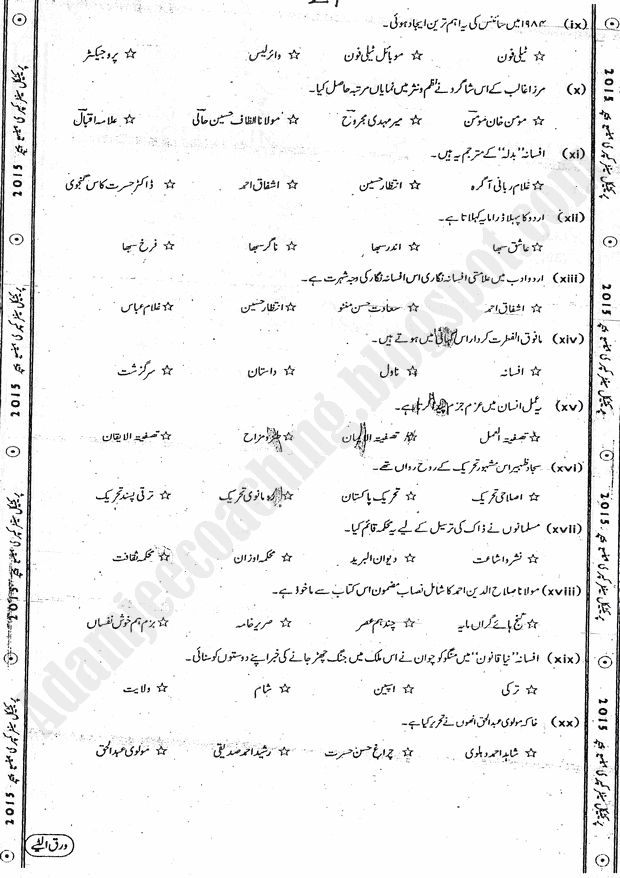 (ix) ۱۹۸۴ میں سائنس کی یہ اہم ترین ایجاد ہوئی۔
☆ ٹیلی فون ☆ موبائل ٹیلی فون ☆ وائرلیس ☆ پروجیکٹر
(x) مرزا غالب کے اس شاگرد نے نظم و نثر میں نمایاں مرتبہ حاصل کیا۔
☆ مومن خان مومن ☆ میر مہدی مجروح ☆ مولانا الطاف حسین حالی ☆ علامہ اقبال
(xi) افسانہ "بدلہ" کے مترجم یہ ہیں۔
☆ غلام ربانی آگرہ ☆ انتظار حسین ☆ اشفاق احمد ☆ ڈاکٹر حسرت کاس گنجوی
(xii) اردو کا پہلا ڈراما یہ کہلاتا ہے۔
☆ عاشق سبھا ☆ اندر سبھا ☆ ناگر سبھا ☆ فرخ سبھا
(xiii) اردو ادب میں علامتی افسانہ نگاری اس افسانہ نگار کی وجہ شہرت ہے۔
☆ اشفاق احمد ☆ سعادت حسن منٹو ☆ انتظار حسین ☆ غلام عباس
(xiv) مافوق الفطرت کردار اس کہانی میں ہوتے ہیں۔
☆ افسانہ ☆ ناول ☆ داستان ☆ سرگزشت
(xv) یہ عمل انسان میں عزم جزم پیدا کرتا ہے۔
☆ تصفیۃ العمل ☆ تصفیۃ الایمان ☆ طنز و مزاح ☆ تصفیۃ الایقان
(xvi) سجاد ظہیر اس مشہور تحریک کے روح رواں تھے۔
☆ اصلاحی تحریک ☆ تحریک پاکستان ☆ رومانوی تحریک ☆ ترقی پسند تحریک
(xvii) مسلمانوں نے ڈاک کی ترسیل کے لیے یہ محکمہ قائم کیا۔
☆ نشر و اشاعت ☆ دیوان البرید ☆ محکمہ اوزان ☆ محکمہ ثقافت
(xviii) مولانا صلاح الدین احمد کا شامل نصاب مضمون اس کتاب سے ماخوذ ہے۔
☆ گنج ہائے گراں مایہ ☆ چند ہم عصر ☆ صریر خامہ ☆ بزم ہم خوش نفساں
(xix) افسانہ "نیا قانون" میں منگو کوچوان نے اس ملک میں جنگ چھڑ جانے کی خبر اپنے دوستوں کو سنائی۔
☆ ترکی ☆ اسپین ☆ شام ☆ ولایت
(xx) خاکہ مولوی عبدالحق انھوں نے تحریر کیا ہے۔
☆ شاہد احمد دہلوی ☆ چراغ حسن حسرت ☆ رشید احمد صدیقی ☆ مولوی عبدالحق
ورق الٹیے
2015
2015
2015
2015
2015
2015
2015
2015
Adamjeecoaching.blogspot.com